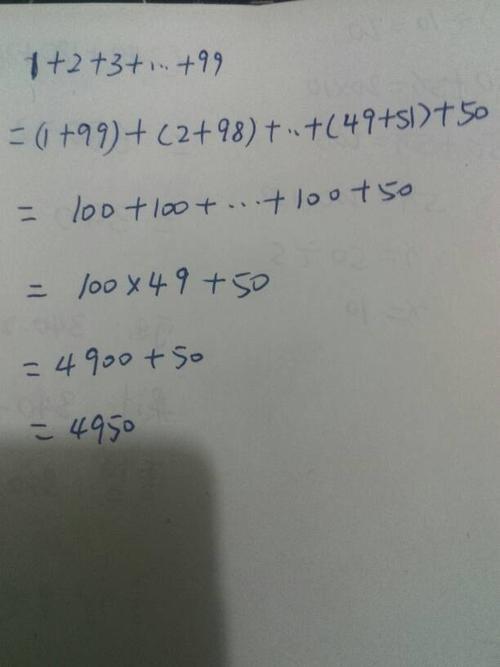 1+2+3+...+99
=(1+99)+(2+98)+..+(49+51)+50
= 100+100+...+100+50
= 100×49+50
=4900+50
=4950